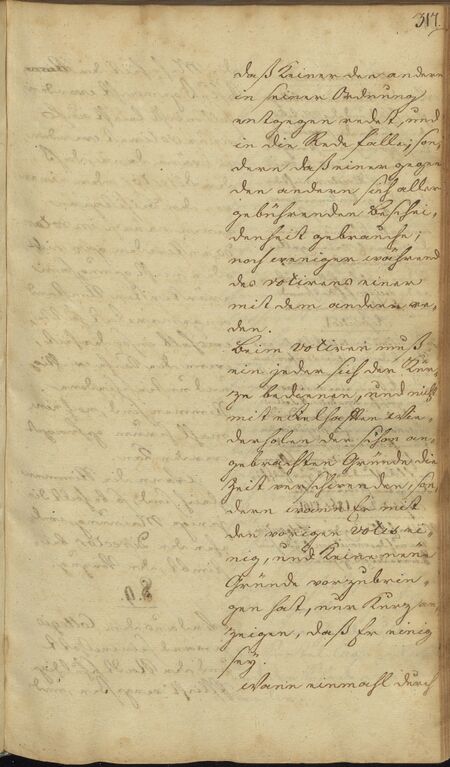 317.
daß Keiner den andern
in seiner Ordnung
entgegen redet, und
in die Rede falle; son„
dern daß einer gegen
den andern sich aller
gebührenden Beschei„
denheit gebrauche;
noch weniger während
des votirens einer
mit dem andern re„
den.
Beim votiren muß
ein jeder sich der Kür„
ze bedienen, und nicht
mit ekelhaften Wie„
derholen der schon an„
gebrachten Gründe die
Zeit verschwenden, son„
dern wann Er mit
den vorigen Votis ei„
nig, und Keine neue
Gründe vorzubrin„
gen hat, nur Kurz an„
zeigen, daß Er einig
seÿ.
Wann einmahl durch